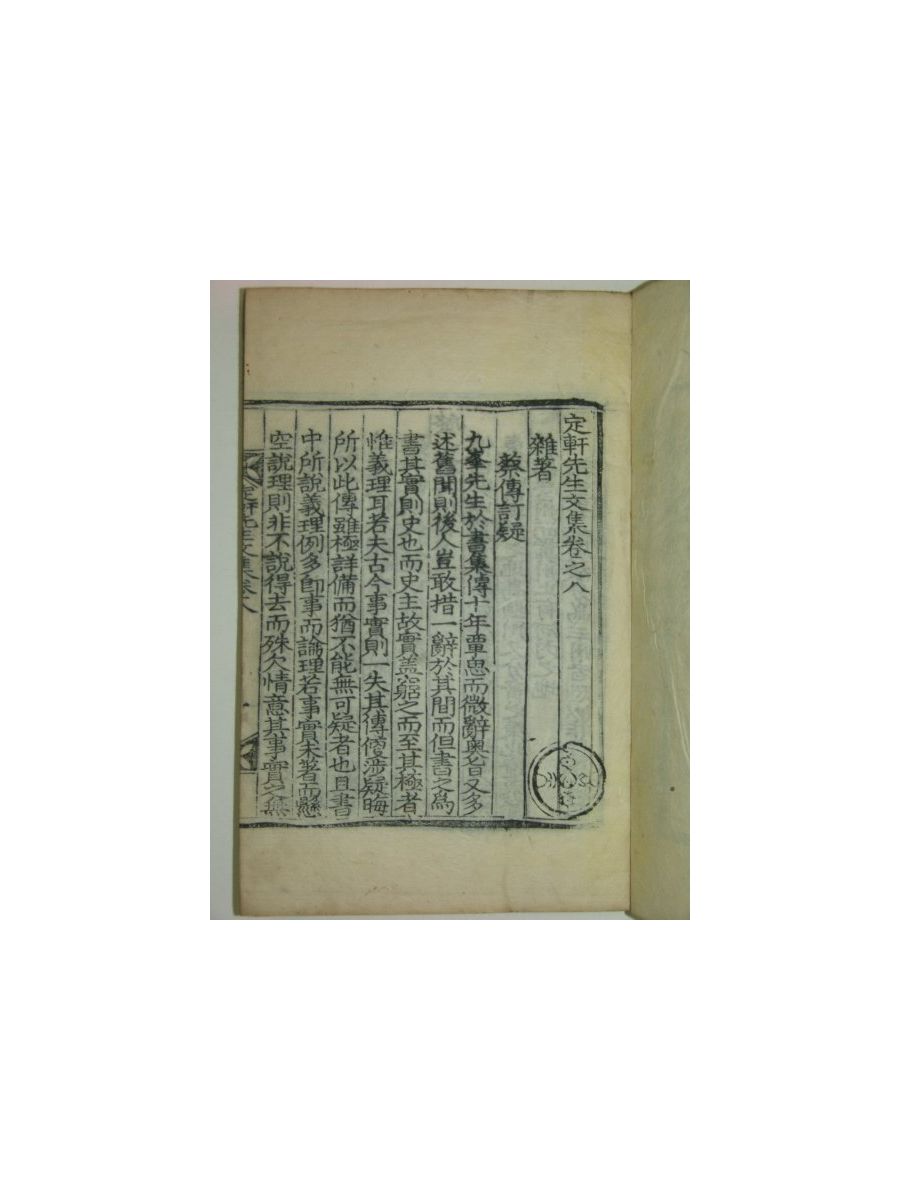 定軒先生文集卷之八
雜著
蔡傳訂疑
九峯先生於書集傳十年覃思而微辭奧旨又多
述舊聞則後人豈敢措一辭於其間而但書之爲
書其實則史也而史主故實盖窮之而至其極者
惟義理耳若夫古今事實則一失其傳傍涉疑晦
所以此傳雖極詳備而猶不能無可疑者也且書
中所說義理例多卽事而論理若事實未著而懸
空說理則非不說得去而殊欠情意其事實之無
定軒先生文集卷八